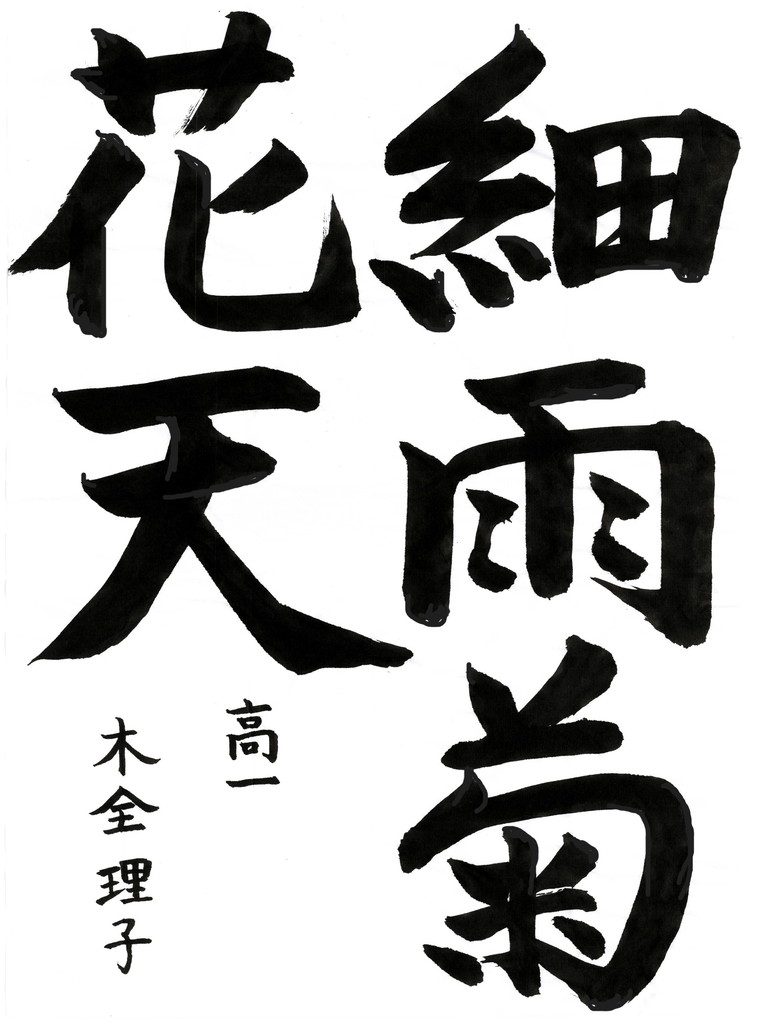 細雨菊
花天
高一
木全理子